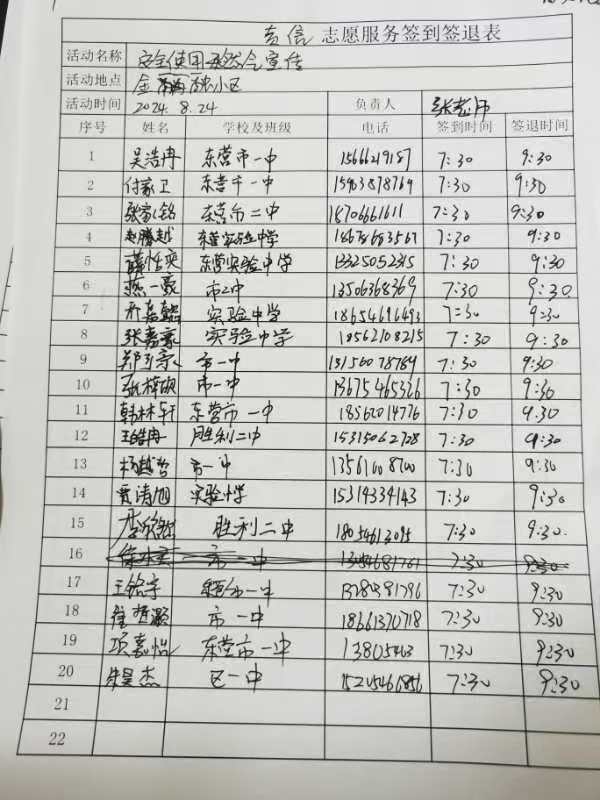 志信 志愿服务签到签退表
活动名称 安全使用天然气宣传
活动地点 金 小区
活动时间 2024.8.24 负责人 张老师
序号 姓名 学校及班级 电话 签到时间 签退时间
1 吴浩冉 东营市一中 1566219187 7:30 9:30
2 付家卫 东营市一中 15963878769 7:30 9:30
3 张家铭 东营市二中 18706661611 7:30 9:30
4 赵腾越 东营实验中学 18678683567 7:30 9:30
5 薛恺奕 东营实验中学 13325052315 7:30 9:30
6 燕一豪 市2中 13506368369 7:30 9:30
7 乔嘉麟 实验中学 18654696493 7:30 9:30
8 张嘉豪 实验中学 18562108215 7:30 9:30
9 市一中 7:30 9:30
10 张梓硕 市一中 13675465326 7:30 9:30
11 韩林轩 东营市一中 18562014776 7:30 9:30
12 王皓冉 胜利二中 15315062728 7:30 9:30
13 杨越哲 市一中 7:30 9:30
14 贾涛旭 实验中学 15314334143 7:30 9:30
15 胜利二中 18054613095 7:30 9:30
16 市一中 7:30 9:30
17 王铭宇 一中 7:30 9:30
18 崔 灏 市一中 18661370718 7:30 9:30
19 项嘉怡 东营市一中 13805463 7:30 9:30
20 朱昊杰 区一中 15205466856 7:30 9:30
21
22